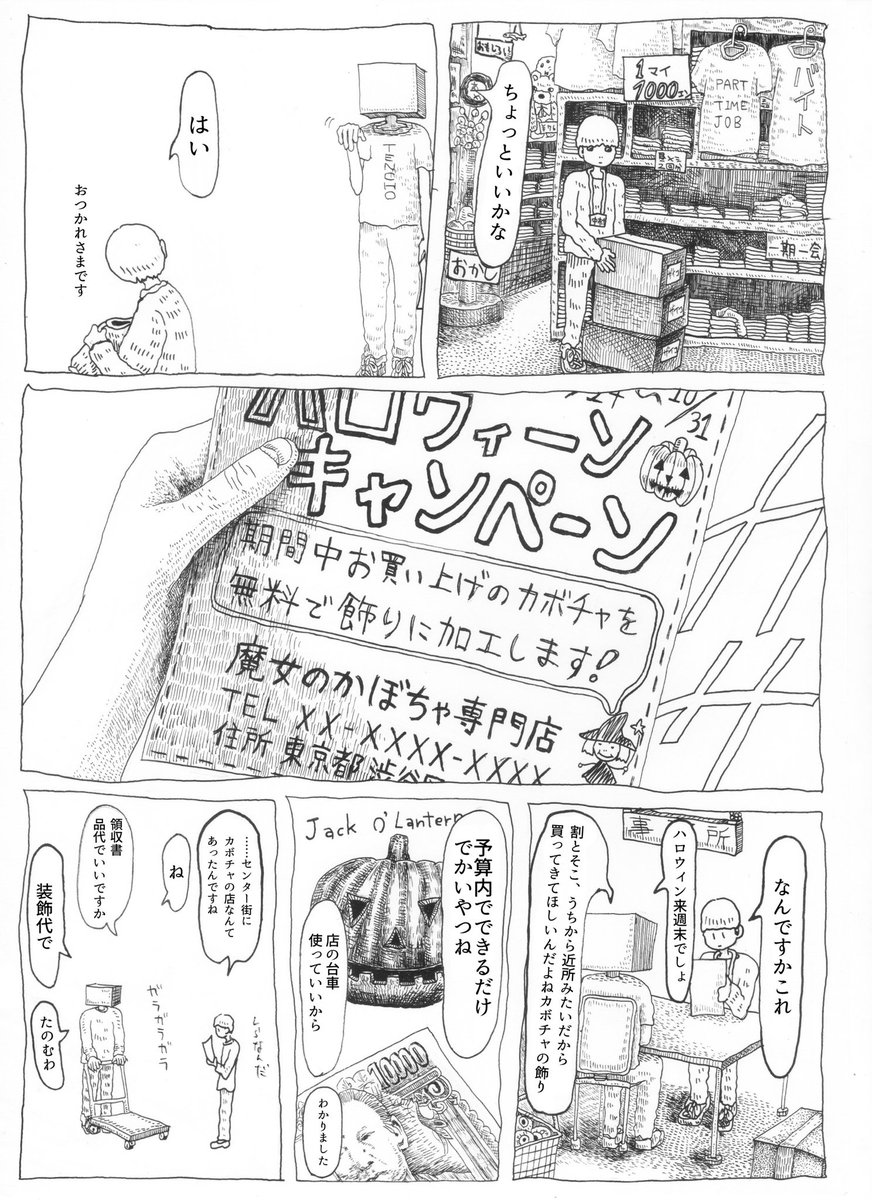 おもしろい
1マイ
1000エン
PART
TIME
JOB
バイト
ちょっといいかな
一期一会
おかし
はい
おつかれさまです
TENCHO
10/31
ハロウィーン
キャンペーン
期間中お買い上げのカボチャを
無料で飾りに加工します!
魔女のかぼちゃ専門店
TEL XX-XXXX-XXXX
住所 東京都渋谷区
事務所
なんですかこれ
ハロウィン来週末でしょ
割とそこ、うちから近所みたいだから
買ってきてほしいんだよねカボチャの飾り
Jack O'Lantern
予算内でできるだけ
でかいやつね
店の台車
使っていいから
10000
わかりました
……センター街に
カボチャの店なんて
あったんですね
ね
領収書
品代でいいですか
装飾代で
たのむわ
ガラガラガラ
しらなんだ